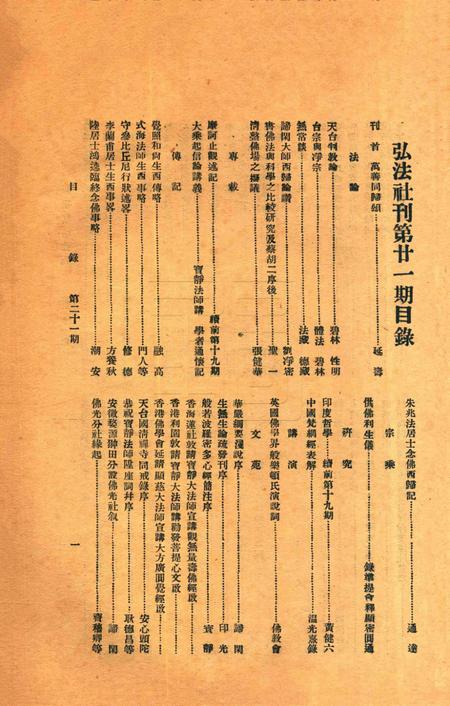 弘法社刊第廿一期目錄
刊首 萬善同歸頌 延壽
法論
天台判教論 碧林 性明
台宗與淨宗 體法 碧林
無常談 法藏 德藏
諦閑大師西歸論讚 劉淨密
書佛法與科學之比較研究及蔡胡二序後 聖一
清整佛場之擬議 張健華
專載
摩訶止觀述記 續前第十九期
大乘起信論講義 寶靜法師講 學者通懷記
傳記
覺照和尚生西傳略 融高
式海法師生西事略 門人等
守參比丘尼行狀述畧 修德
李蘭甫居士生西事畧 方養秋
陸居士鴻逵臨終念佛事略 湖安
朱兆法居士念佛西歸記 通達
宗乘
供佛利生儀 錄準提會釋顯密圓通
研究
印度哲學 續前第十九期 黃健六
中國梵網經表解 溫光熹錄
講演
英國佛學界般樂頓氏演說詞 佛教會
文苑
華嚴綱要淺說序 諦閑
生無生論疏發刊序 印光
般若波羅密多心經簡注序 寶靜
香海蓮社敦請寶靜大法師宣講觀無量壽佛經啟
香港利園請寶靜大法師講勸發菩提心文啟
香港佛學會延請顯慈大法師宣講大方廣圓覺經啟
天台國清禪寺同戒錄序 安心頭陀
恭祝寶靜法師陞座詞幷序 耿德昌等
安徽婺源辦田分設佛光社叙 諦閑
佛光分社緣起 齊穡卿等
目錄 第二十一期 一